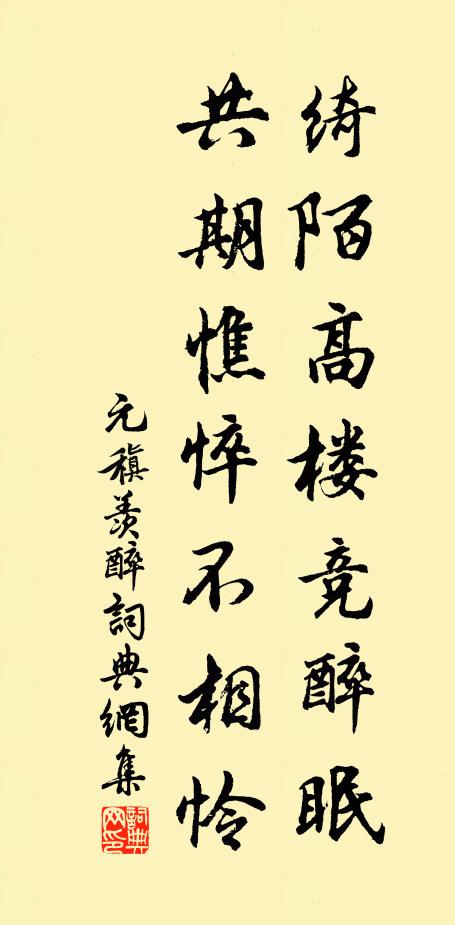 绮陌高楼竞醉眠
共期憔悴不相怜
元稹羨醉詞典網集
詞典网印